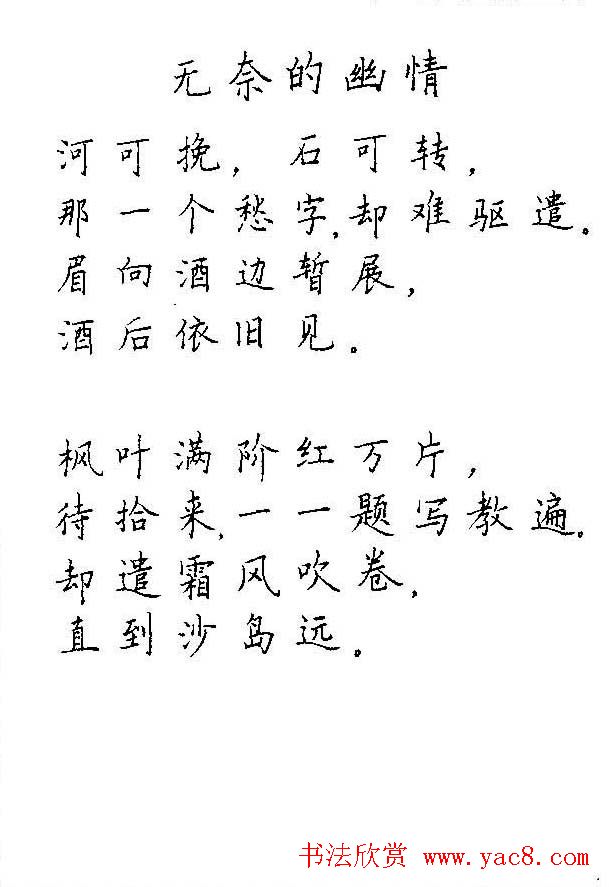 无奈的幽情
河可挽，石可转，
那一个愁字，却难驱遣。
眉向酒边暂展，
酒后依旧见。
枫叶满阶红万片，
待拾来，一一题写教遍。
却遣霜风吹卷，
直到沙岛远。
书法欣赏 www.yac8.com